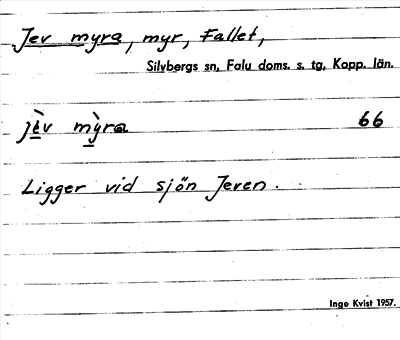 Jev myra, myr, Fallet,
Silvbergs sn, Falu doms. s. tg, Kopp. län.
jèv mỳra 66
Ligger vid sjön Jeven.
Inge Kvist 1957.